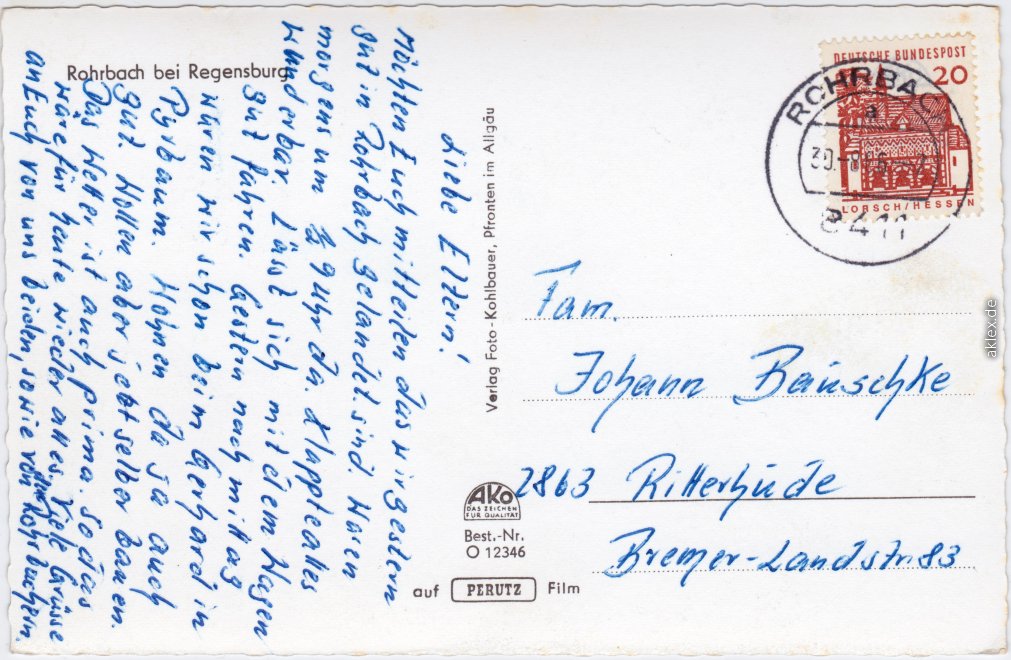 Rohrbach bei Regensburg
Liebe Eltern!
Möchten Euch mitteilen das wir gestern
gut in Rohrbach gelandet sind. Waren
morgens um ½ 9 Uhr da. Klappte alles
wunderbar. Läst sich mit dem Wagen
gut fahren. Gestern nach mittag
wären wir schon beim Gerhard in
Pyrbaum. Wohnen da ja auch
gut. Wollen aber jetzt selber bauen.
Das Wetter ist auch prima so das
wäre für heute wieder alles. Viele Grüsse
an Euch von uns beiden, sowie von den Rohrbachern.
Verlag Foto-Kohlbauer, Pfronten im Allgäu
AKO
DAS ZEICHEN
FÜR QUALITÄT
Best.-Nr.
O 12346
auf PERUTZ Film
DEUTSCHE BUNDESPOST
20
LORSCH/HESSEN
ROHRBACH
a
8411
Fam.
Johann Bäuschke
2863 Ritterhude
Bremer-Landstr. 83
aklex.de